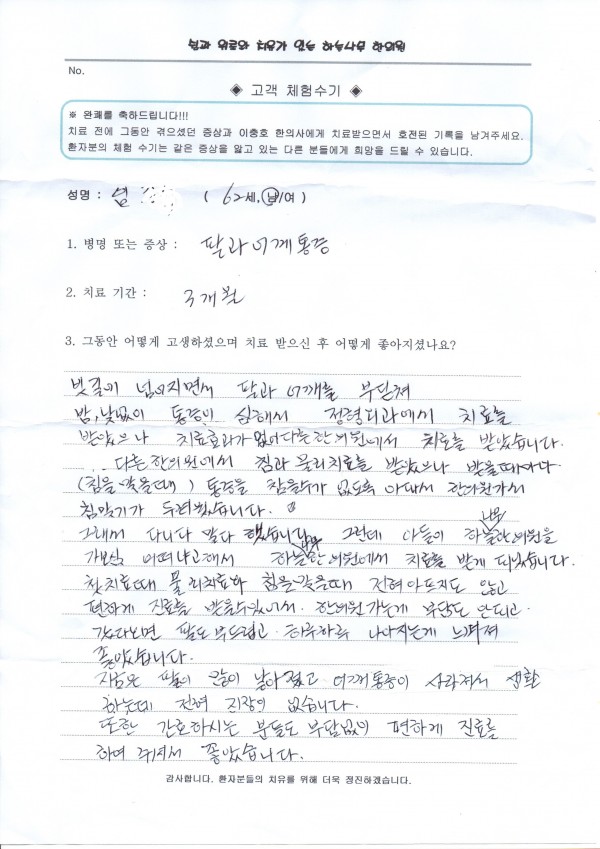 No.
◈ 고객 체험수기 ◈
※ 완쾌를 축하드립니다!!!
치료 전에 그동안 겪으셨던 증상과 이충호 한의사에게 치료받으면서 호전된 기록을 남겨주세요.
환자분의 체험 수기는 같은 증상을 앓고 있는 다른 분들에게 희망을 드릴 수 있습니다.
성명 : ( 62세, 남/여 )
1. 병명 또는 증상 : 팔과 어깨통증
2. 치료 기간 : 3개월
3. 그동안 어떻게 고생하셨으며 치료 받으신 후 어떻게 좋아지셨나요?
빗길에 넘어지면서 팔과 어깨를 부딛쳐
밤,낮없이 통증이 심해서 정형외과에서 치료를
받았으나 치료효과가 없어 다른 한의원에서 치료를 받았습니다.
다른 한의원에서 침과 물리치료를 받았으나 받을때마다
(침을 맞을때) 통증을 참을수가 없도록 아파서 한의원가서
침맞기가 두려웠습니다.
그래서 다니다 말다 했습니다 그런데 아들이 하늘나무한의원을
가보심 어떠냐고해서 하늘나무한의원에서 치료를 받게 되었습니다.
첫치료때 물리치료와 침을 맞을때 전혀 아프지도 않고
편하게 진료를 받을수있어서 한의원 가는게 부담도 안되고
갔다오면 팔도 부드럽고 하루하루 나아지는게 느껴져
좋았습니다.
지금은 팔이 많이 낳아졌고 어깨통증이 사라져서 생활
하는데 전혀 지장이 없습니다.
또한 간호하시는 분들도 부담없이 편하게 진료를
하여 주셔서 좋았습니다.
감사합니다. 환자분들의 치유를 위해 더욱 정진하겠습니다.